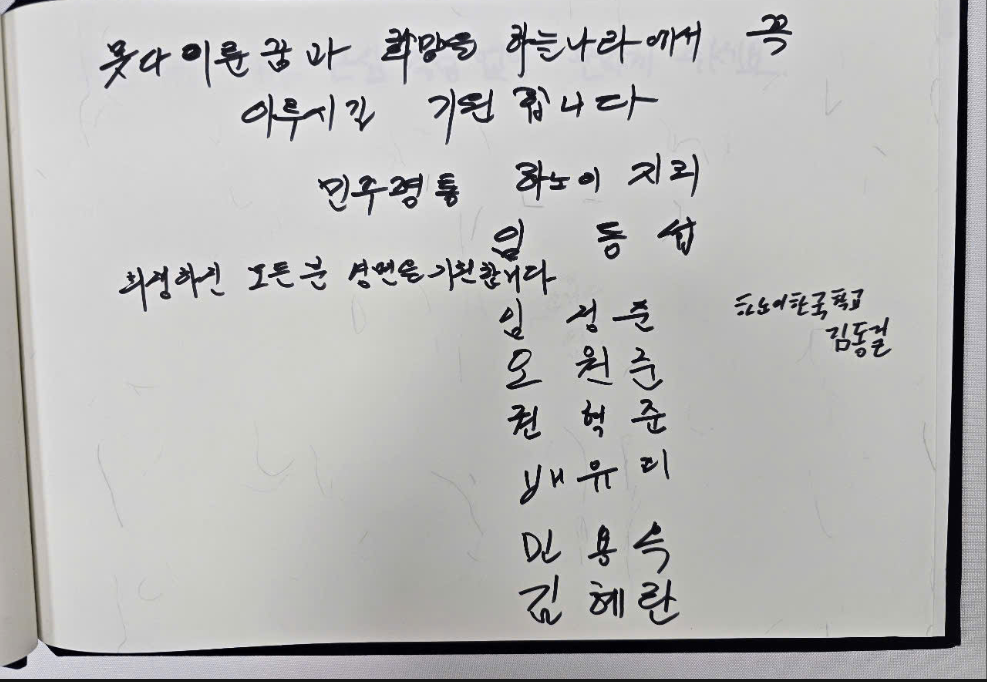 못다 이룬 꿈과 희망을 하늘나라에서 꼭
이루시길 기원합니다
민주평통 하노이 지회
임 동 섭
희생하신 모든 분 영면을 기원합니다
임 성 준
하노이한국학교
김동길
오 원 준
권 혁 준
배 유 미
민 용 숙
김 혜 란